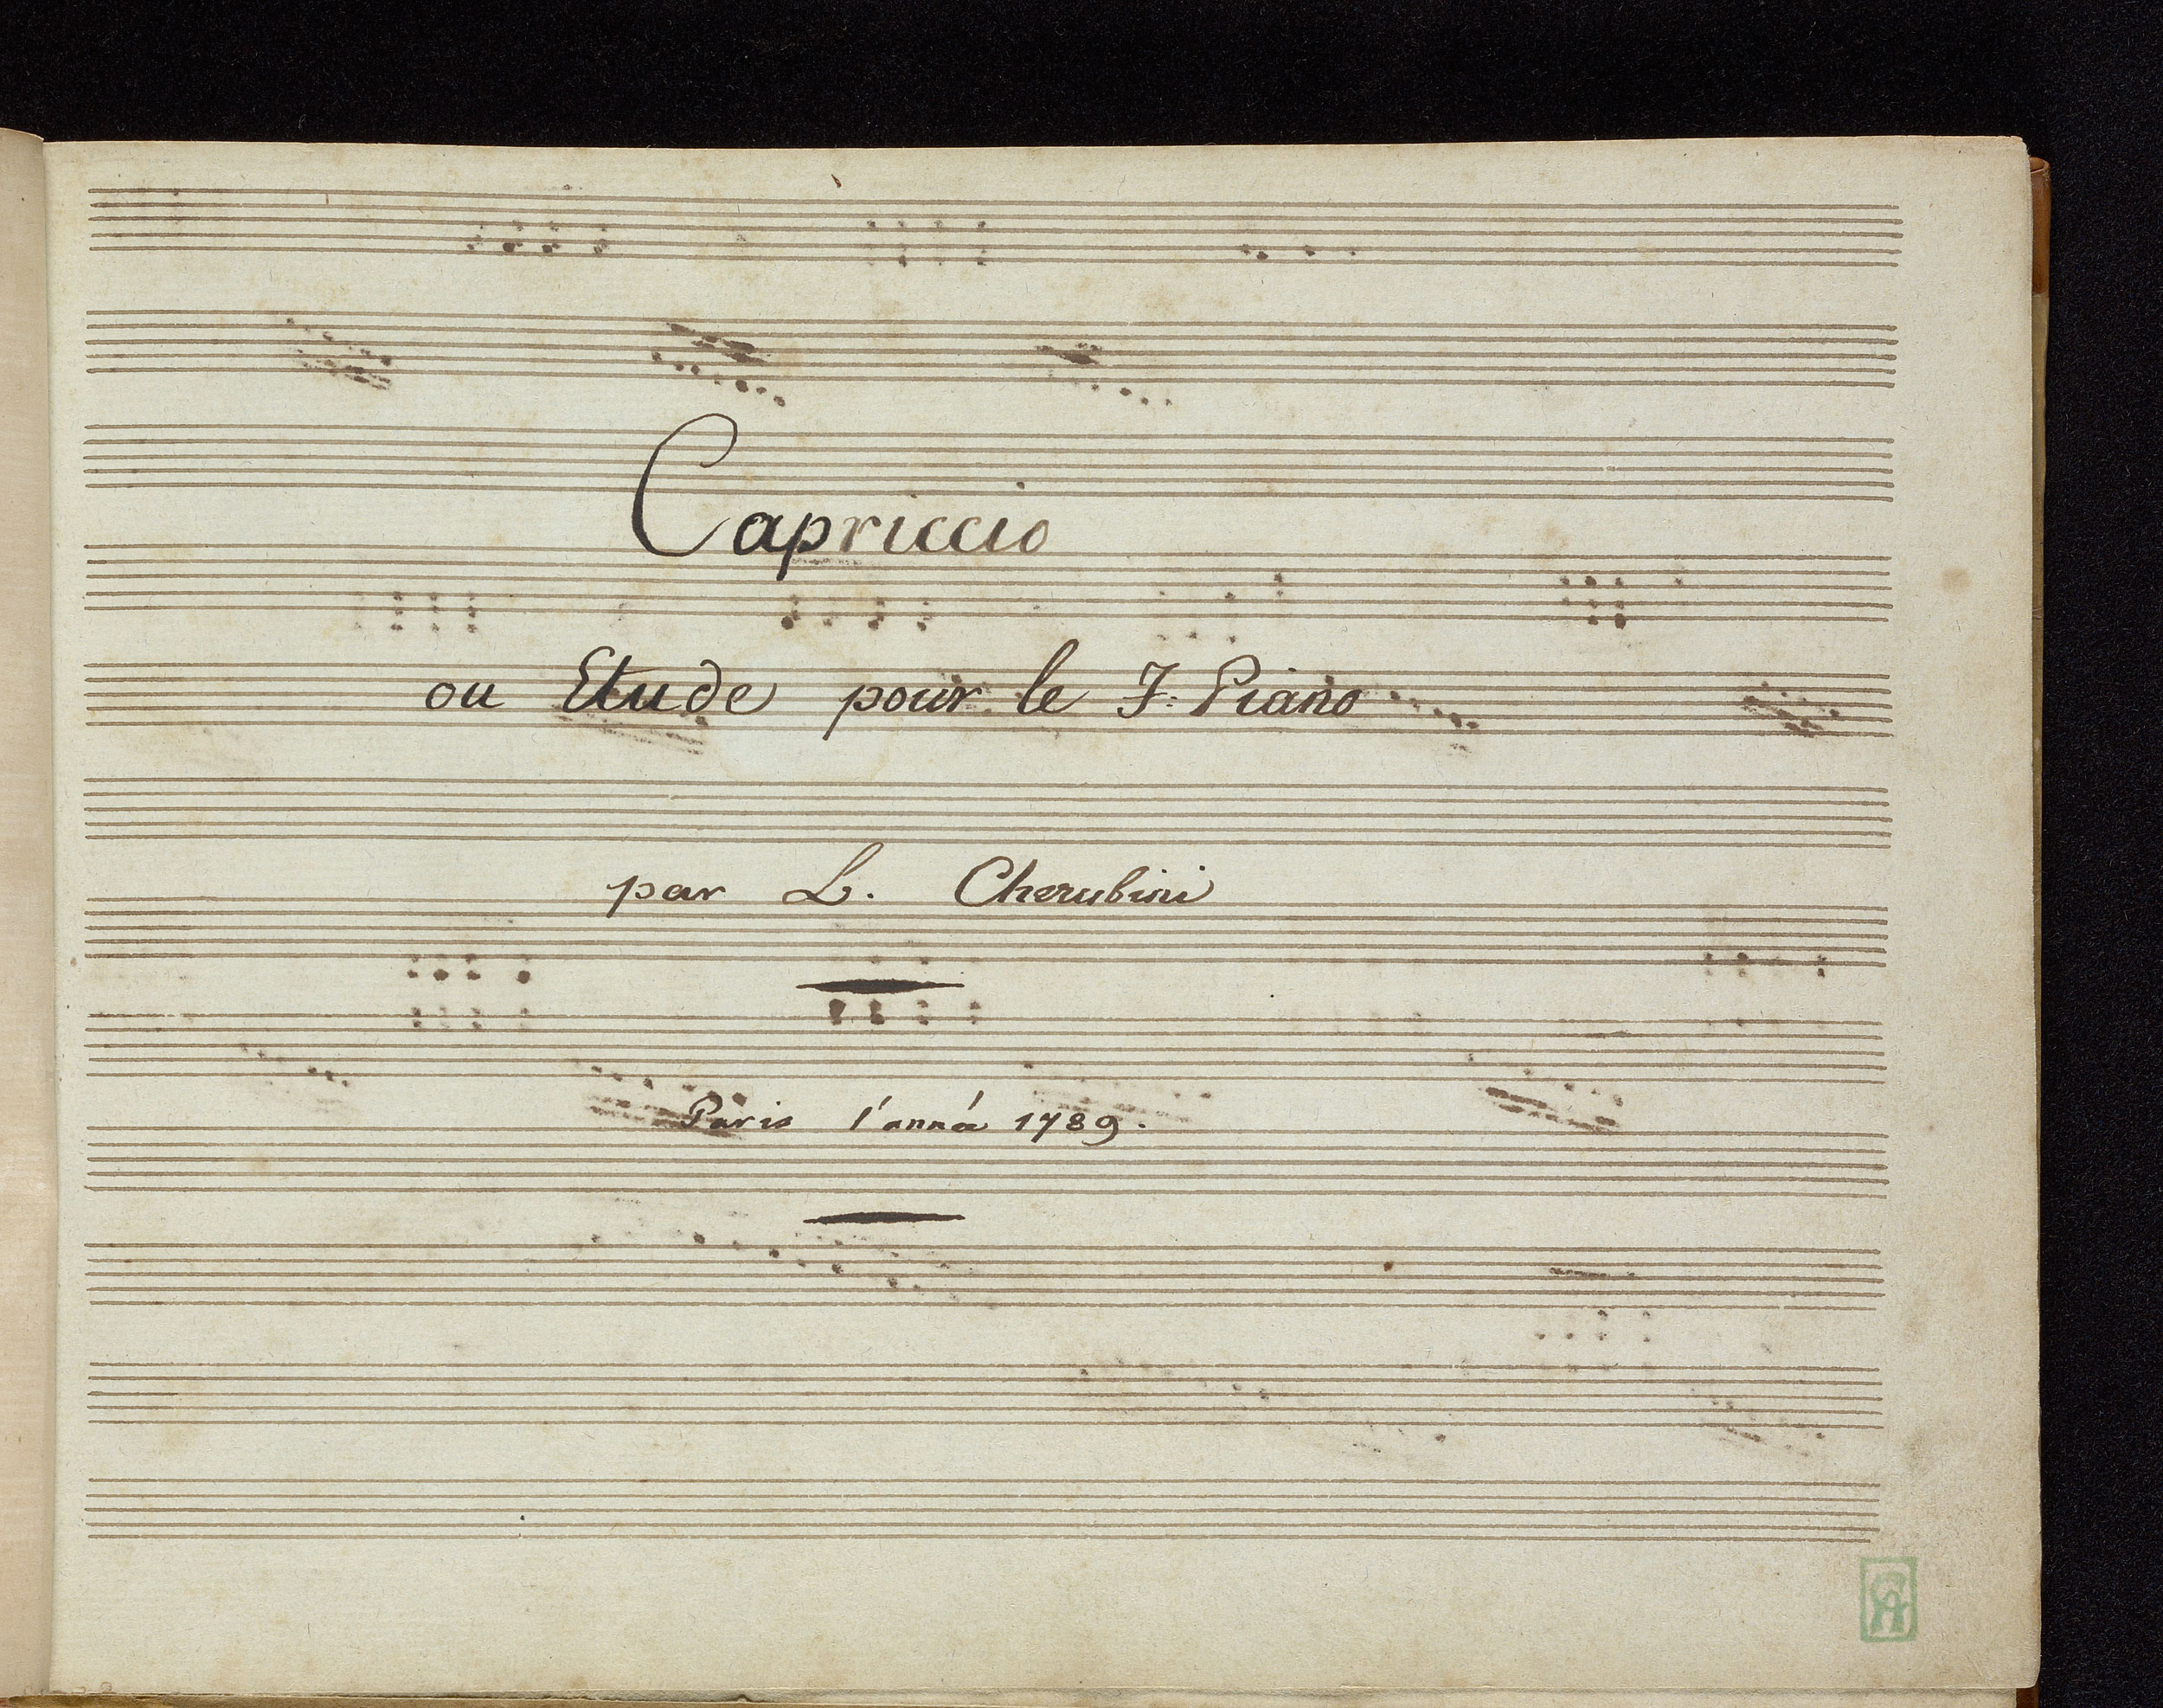 Capriccio
ou Etude pour le F. Piano
par L. Cherubini
Paris l'année 1789.